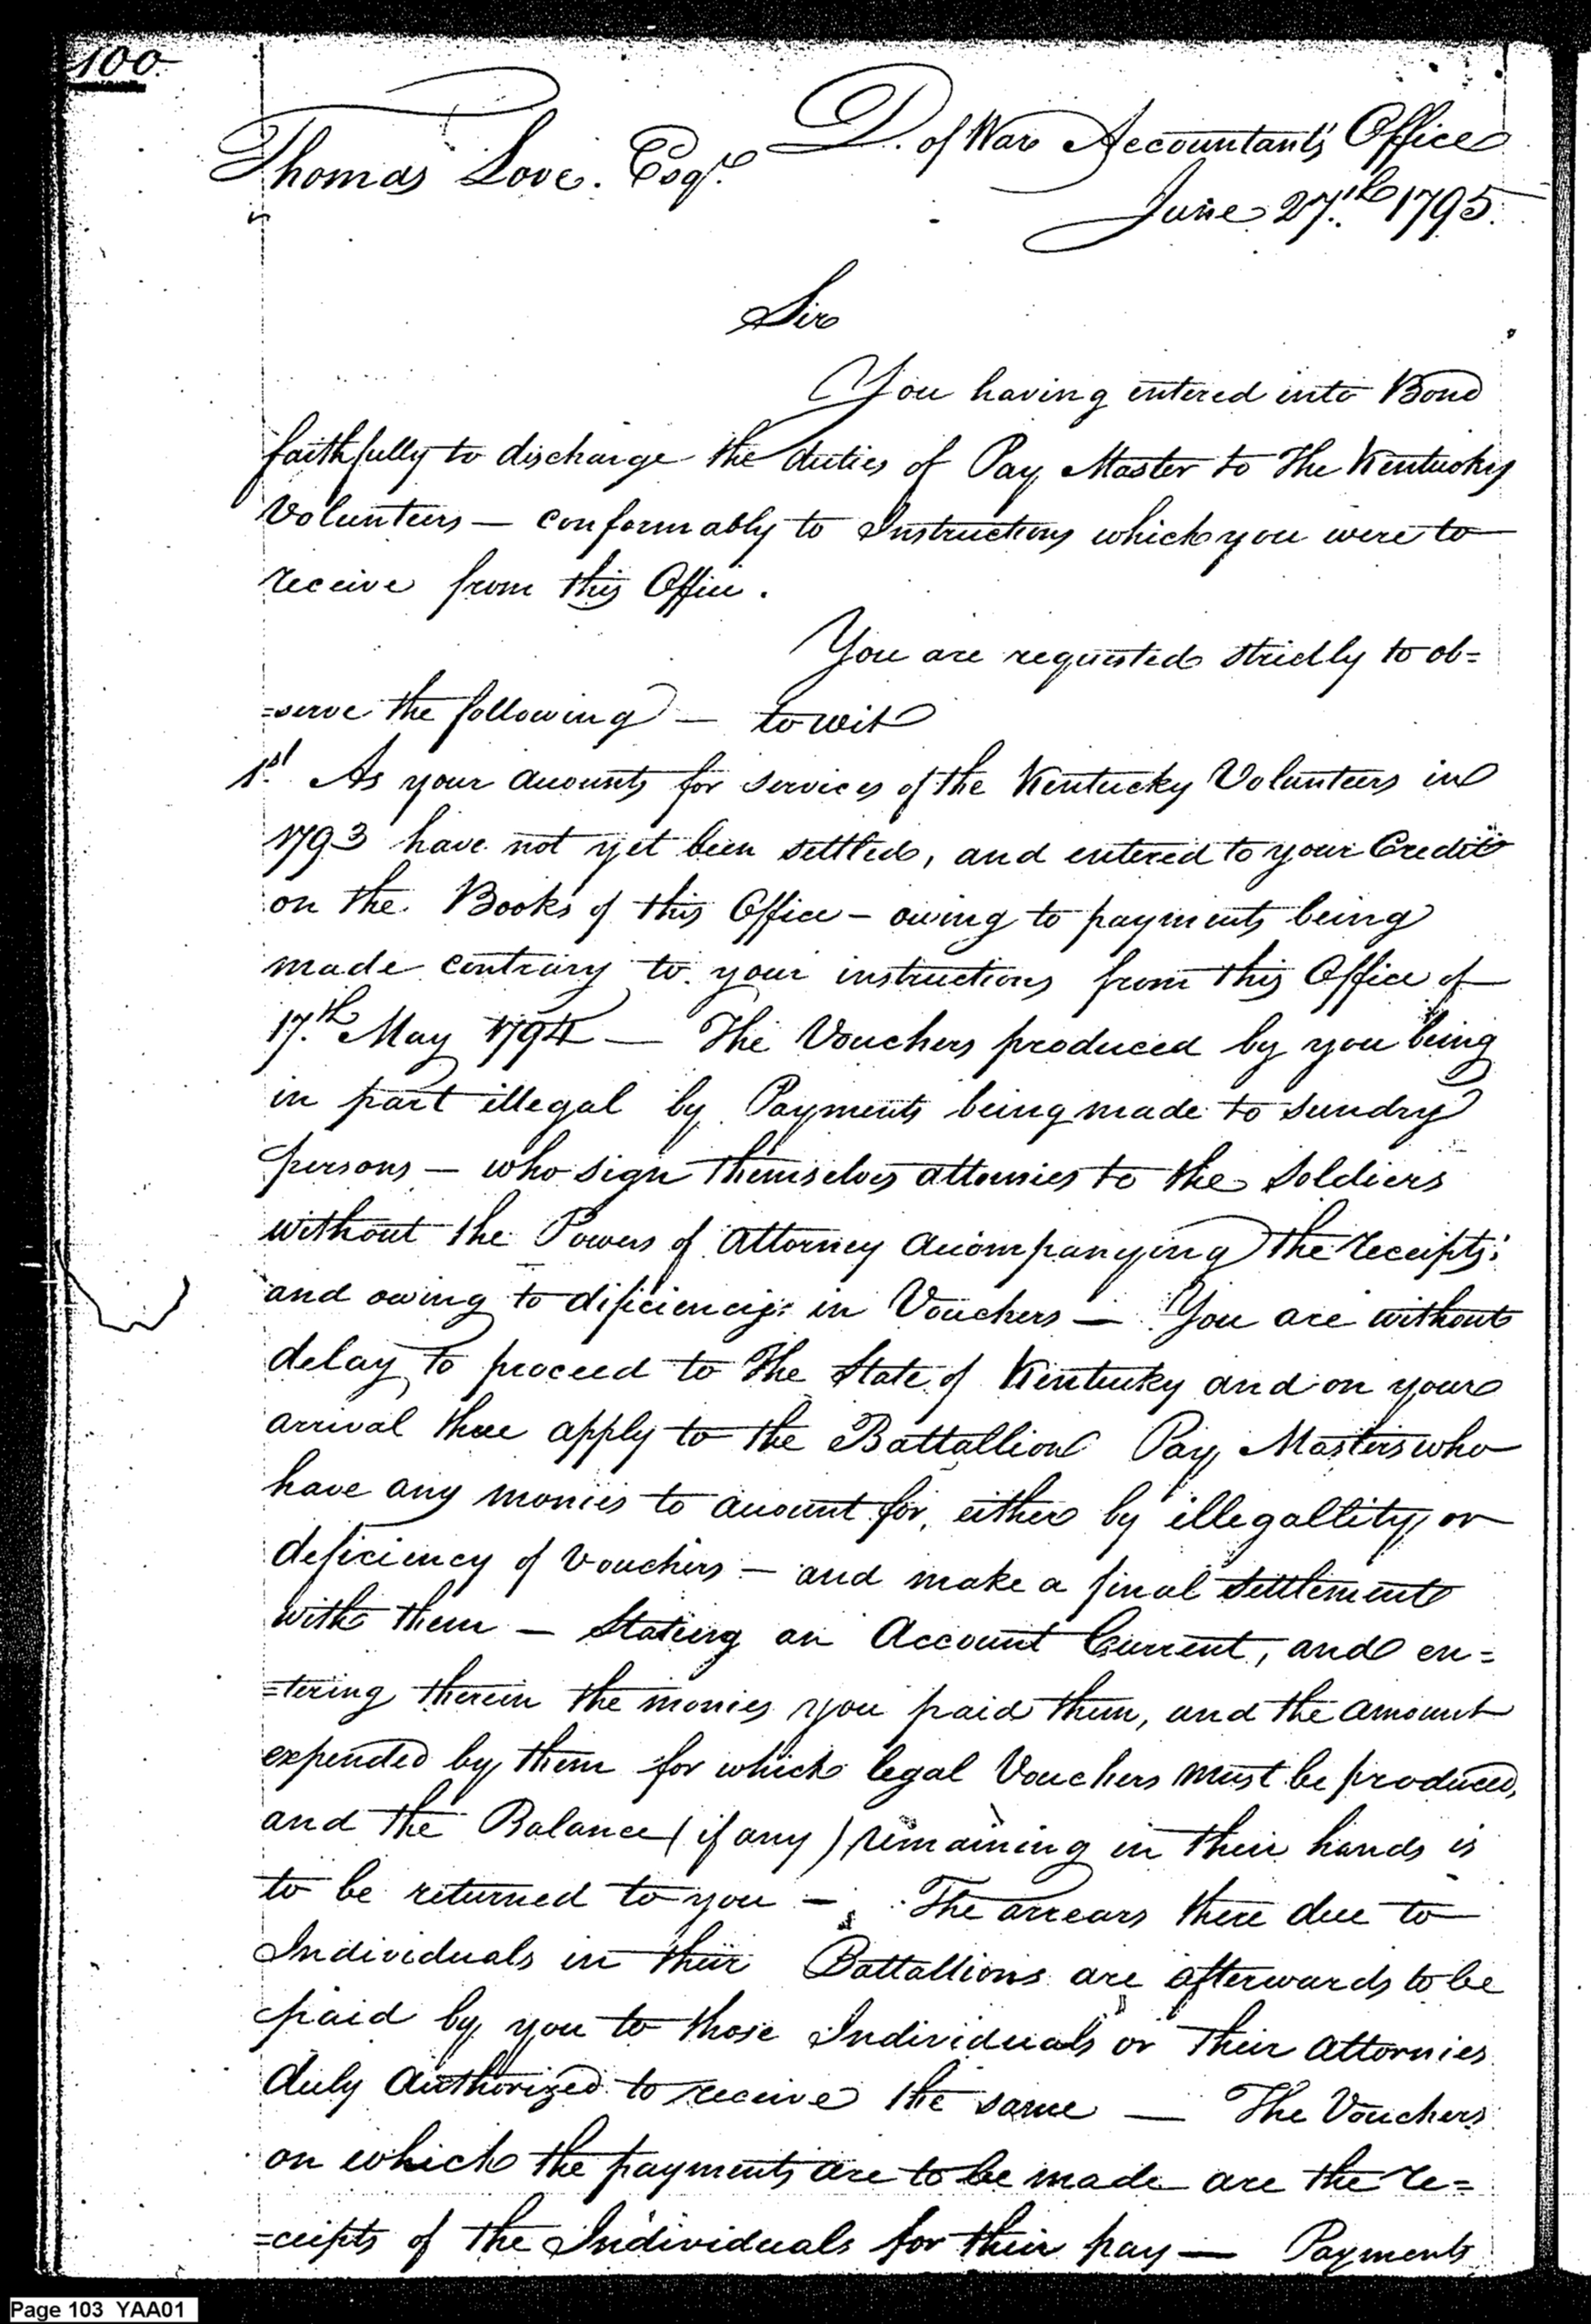 100.
D. of War Accountants Office
Thomas Love. Esqr.
June 27.th 1795.
Sir
You having entered into Bond
faithfully to discharge the duties of Pay Master to the Kentucky
Volunteers — conformably to Instructions which you were to
receive from this Office.
You are requested strictly to ob=
=serve the following — to wit
1st. As your accounts for services of the Kentucky Volunteers in
1793 have not yet been settled, and entered to your Credit
on the Books of this Office — owing to payments being
made contrary to your instructions from this Office of
17.th May 1794 — The Vouchers produced by you being
in part illegal by Payments being made to sundry
persons — who sign themselves attornies to the Soldiers
without the Powers of Attorney accompanying the receipts;
and owing to dificiencys in Vouchers — You are without
delay to proceed to the State of Kentucky and on your
arrival there apply to the Battallion Pay Masters who
have any monies to account for, either by illegallity, or
deficiency of vouchers — and make a final settlement
with them — Stating an Account Current, and en=
=tering therein the monies you paid them, and the amount
expended by them for which legal Vouchers must be produced,
and the Balance (if any) remaining in their hands is
to be returned to you — The arrears there due to
Individuals in their Battallions are afterwards to be
paid by you to those Individuals or their attornies
duly authorized to receive the same — The Vouchers
on which the payments are to be made are the re=
=ceipts of the Individuals for their pay — Payments
Page 103 YAA01